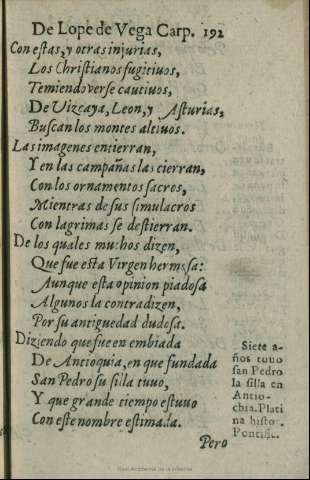 De Lope de Vega Carp. 192
Con estas, y otras injurias,
Los Christianos fugitiuos,
Temiendo verse cautiuos,
De Vizcaya, Leon, y Asturias,
Buscan los montes altiuos.
Las imagenes entierran,
Y en las campañas las cierran,
Con los ornamentos sacros,
Mientras de sus simulacros
Con lagrimas se destierran.
De los quales muchos dizen,
Que fue esta Virgen hermosa:
Aunque esta opinion piadosa
Algunos la contradizen,
Por su antiguedad dudosa.
Diziendo que fue en embiada
De Antioquia, en que fundada
San Pedro su silla tuuo,
Y que grande tiempo estuuo
Con este nombre estimada.
Pero
Siete a-
ños tuuo
san Pedro
la silla en
Antio-
chia. Plati
na histo.
Pontific.
Real Academia de la Historia